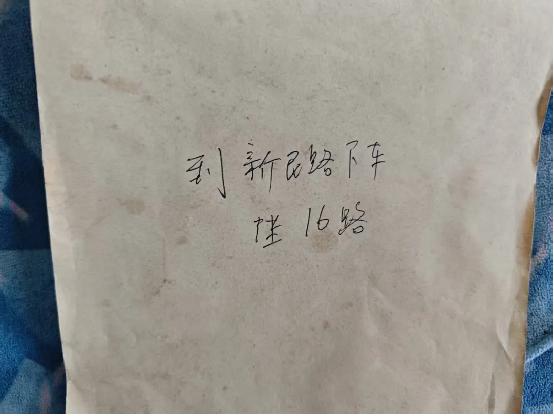 到新民路下车
坐16路